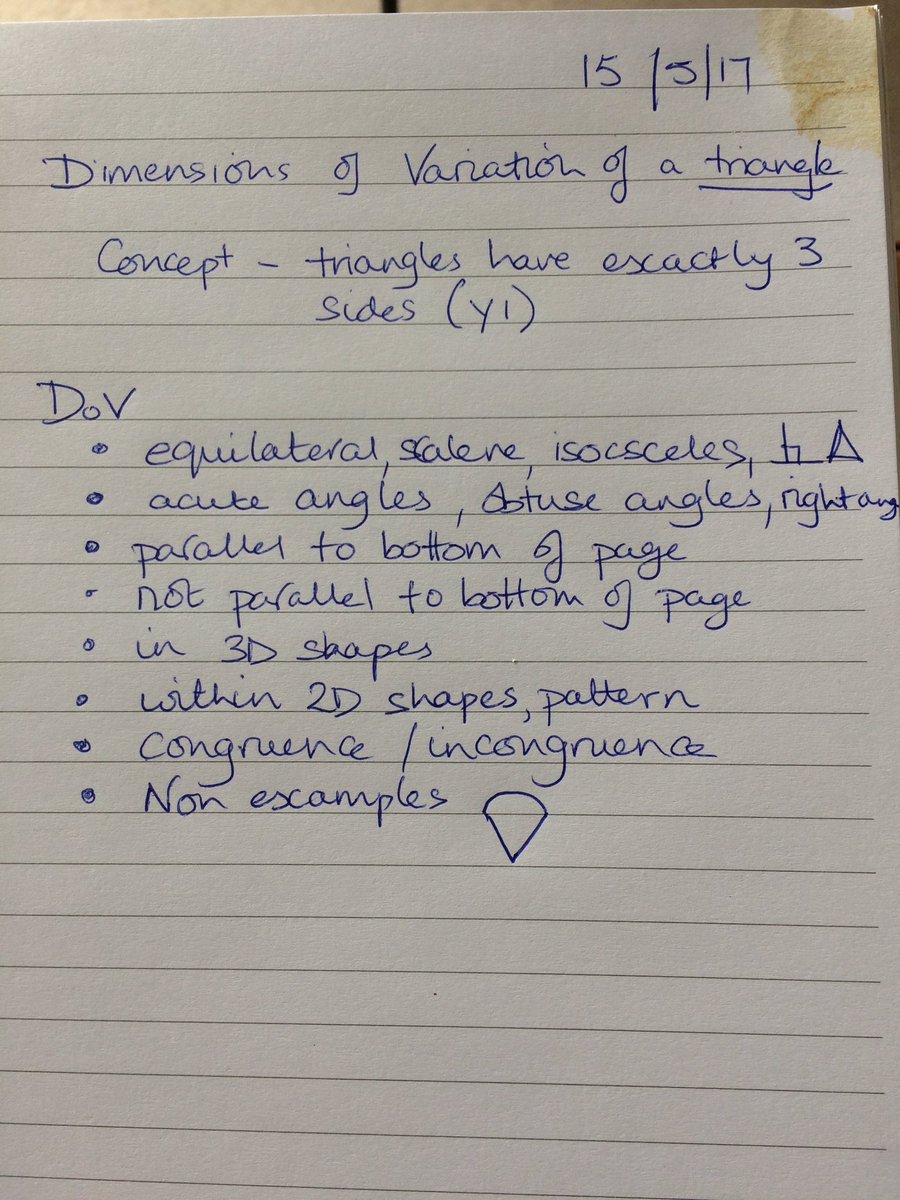 15/5/17
Dimensions of Variation of a triangle
Concept - triangles have exactly 3
sides (Y1)
DoV
• equilateral, scalene, isocsceles,
• acute angles, obtuse angles, right ang
• parallel to bottom of page
• not parallel to bottom of page
• in 3D shapes
• within 2D shapes, pattern
• congruence / incongruence
• Non examples